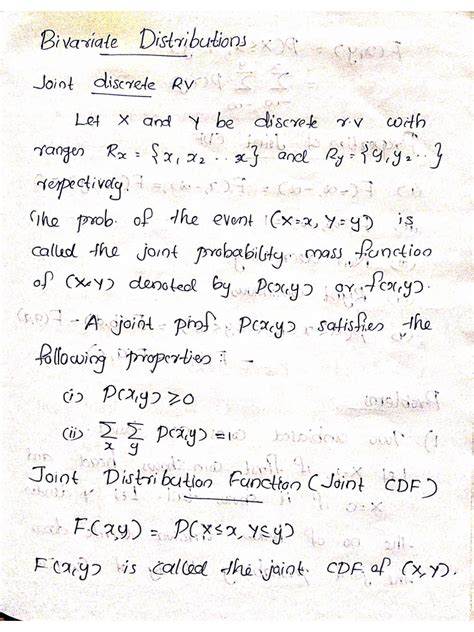 Bivariate Distributions
Joint discrete RV
Let X and Y be discrete r.v with
ranges Rx = {x, x2 .. x} and Ry = {y, y2 ..}
respectively.
The prob. of the event (X=x, Y=y) is
called the joint probability mass function
of (X,Y) denoted by P(x,y) or f(x,y).
- A joint pmf P(x,y) satisfies the
following properties : -
(i) P(x,y) ≥ 0
(ii) Σ Σ P(x,y) = 1
x y
Joint Distribution Function (Joint CDF)
F(xy) = P(X≤x, Y≤y)
F(x,y) is called the joint CDF of (X,Y).